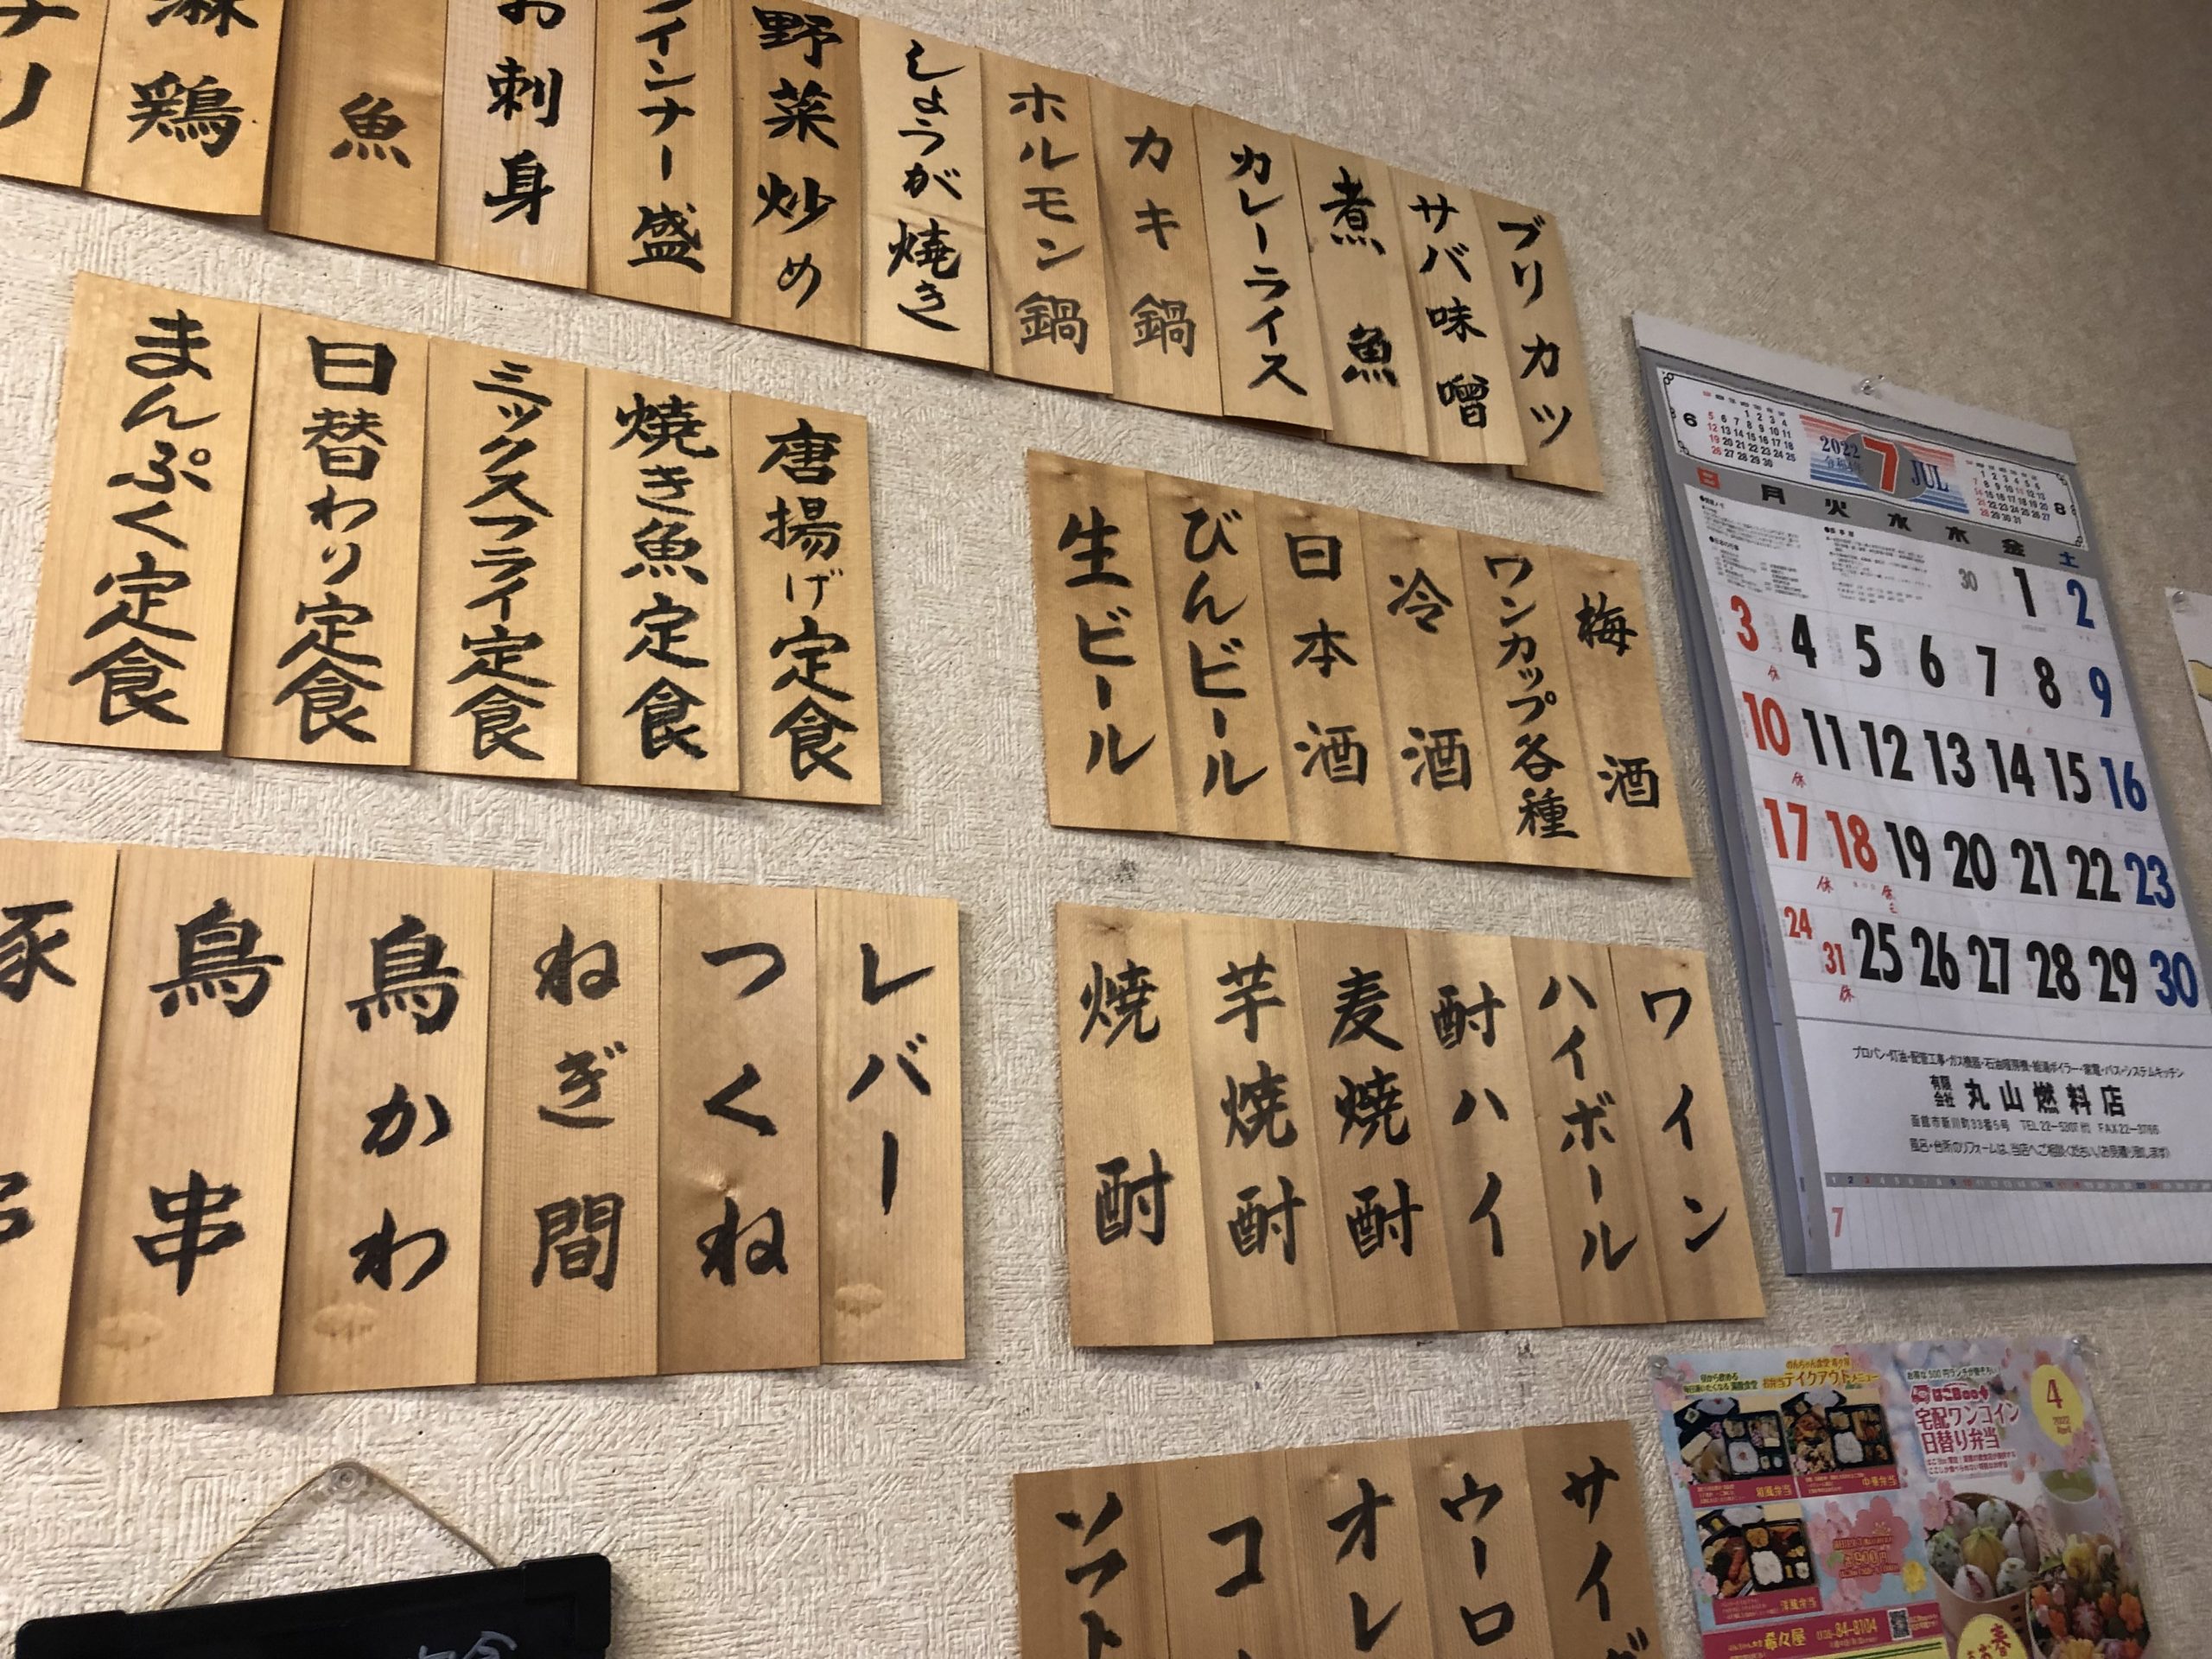 鶏
魚
お刺身
インナー盛
野菜炒め
しょうが焼き
ホルモン鍋
カキ鍋
カレーライス
煮魚
サバ味噌
ブリカツ
まんぷく定食
日替わり定食
ミックスフライ定食
焼き魚定食
唐揚げ定食
生ビール
びんビール
日本酒
冷酒
ワンカップ各種
梅酒
豚串
鳥串
鳥かわ
ねぎ間
つくね
レバー
焼酎
芋焼酎
麦焼酎
酎ハイ
ハイボール
ワイン
ソフト
コ
オレ
ウーロ
サイダ
6
2022
令和4年
7
JUL
8
日 月 火 水 木 金 土
30 1 2
3 4 5 6 7 8 9
休
10 11 12 13 14 15 16
休
17 18 19 20 21 22 23
休 休
24 31 25 26 27 28 29 30
休
プロパン・灯油・配管工事・ガス機器・石油暖房機・給湯ボイラー・家電・バス・システムキッチン
有限会社 丸山燃料店
函館市新川町33番5号 TEL22-5307 FAX22-3766
風呂・台所のリフォームは、当店へご相談ください。(お見積り致します)
7
お弁当テイクアウトメニュー
宅配ワンコイン
日替り弁当
4
2022
April
和風弁当
中華弁当
洋風弁当
900円
希々屋
84-8104
春